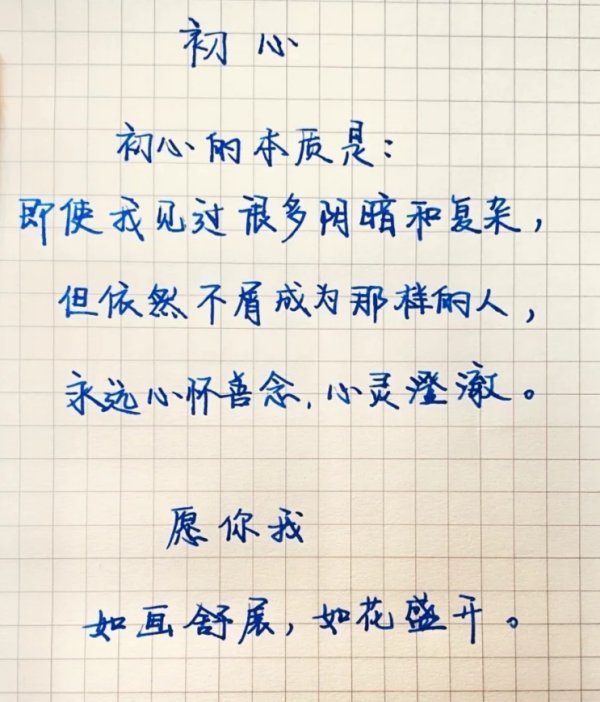 初心
初心的本质是：
即使我见过很多阴暗和复杂，
但依然不屑成为那样的人，
永远心怀善念，心灵澄澈。
愿你我
如画舒展，如花盛开。